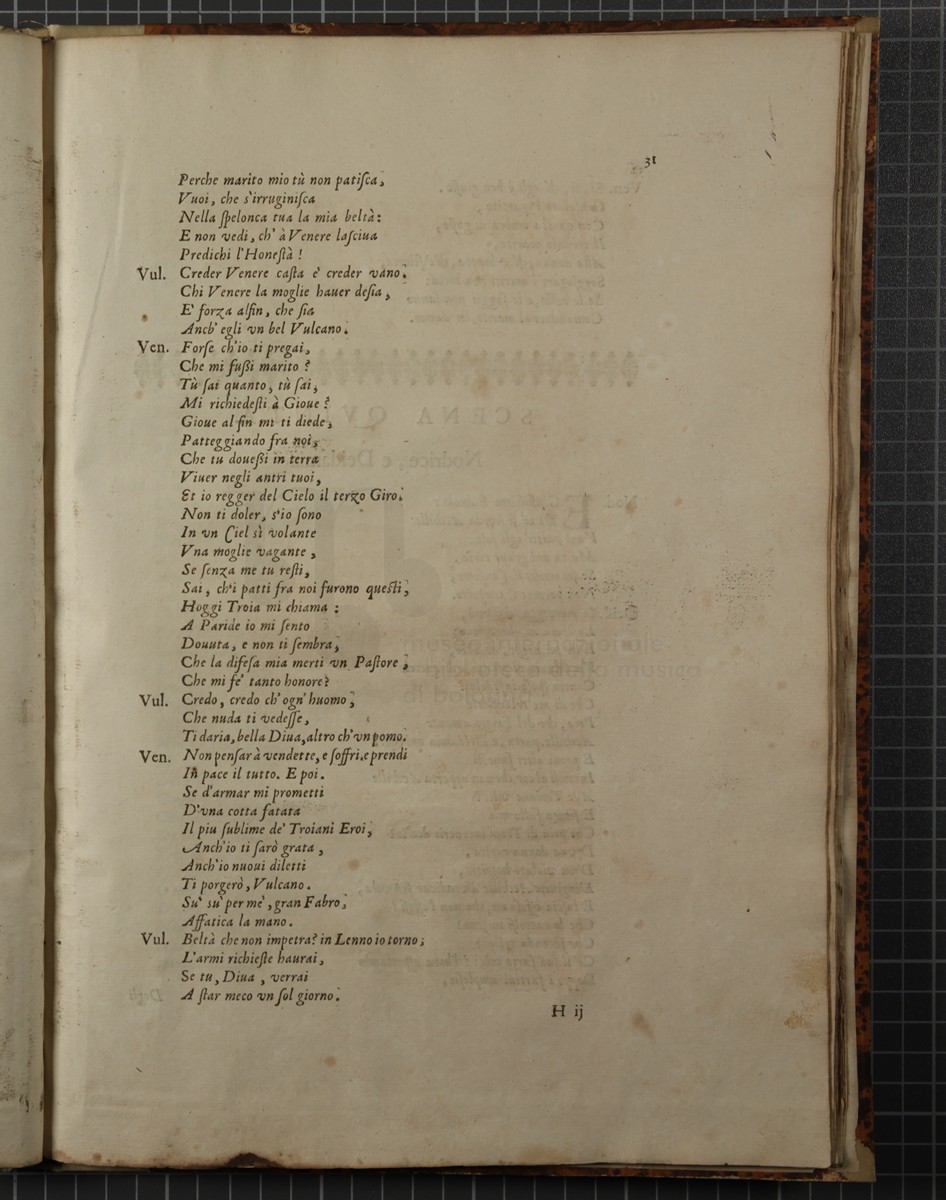 31
Perche marito mio tù non patiſca,
Vuoi, che s'irruginiſca
Nella ſpelonca tua la mia beltà:
E non vedi, ch' à Venere laſciua
Predichi l'Honeſtà !
Vul. Creder Venere caſta e' creder vano.
Chi Venere la moglie hauer deſia,
E' forza alfin, che ſia
Anch' egli vn bel Vulcano.
Ven. Forſe ch'io ti pregai,
Che mi fuſſi marito ?
Tù ſai quanto, tù ſai,
Mi richiedeſti à Gioue ?
Gioue al fin mi ti diede,
Patteggiando fra noi,
Che tu doueſſi in terra
Viuer negli antri tuoi,
Et io regger del Cielo il terzo Giro.
Non ti doler, s'io ſono
In vn Ciel sì volante
Vna moglie vagante,
Se ſenza me tu reſti,
Sai, ch'i patti fra noi furono queſti,
Hoggi Troia mi chiama :
A Paride io mi ſento
Douuta, e non ti ſembra,
Che la difeſa mia merti vn Paſtore,
Che mi fe' tanto honore?
Vul. Credo, credo ch' ogn' huomo,
Che nuda ti vedeſſe,
Ti daria, bella Diua, altro ch'vn pomo.
Ven. Non penſar à vendette, e ſoffri, e prendi
In pace il tutto. E poi.
Se d'armar mi prometti
D'vna cotta fatata
Il piu ſublime de' Troiani Eroi,
Anch'io ti ſarò grata,
Anch'io nuoui diletti
Ti porgerò, Vulcano.
Su' su' per me', gran Fabro,
Affatica la mano.
Vul. Beltà che non impetra? in Lenno io torno;
L'armi richieſte haurai,
Se tu, Diua, verrai
A ſtar meco vn ſol giorno.
H ij